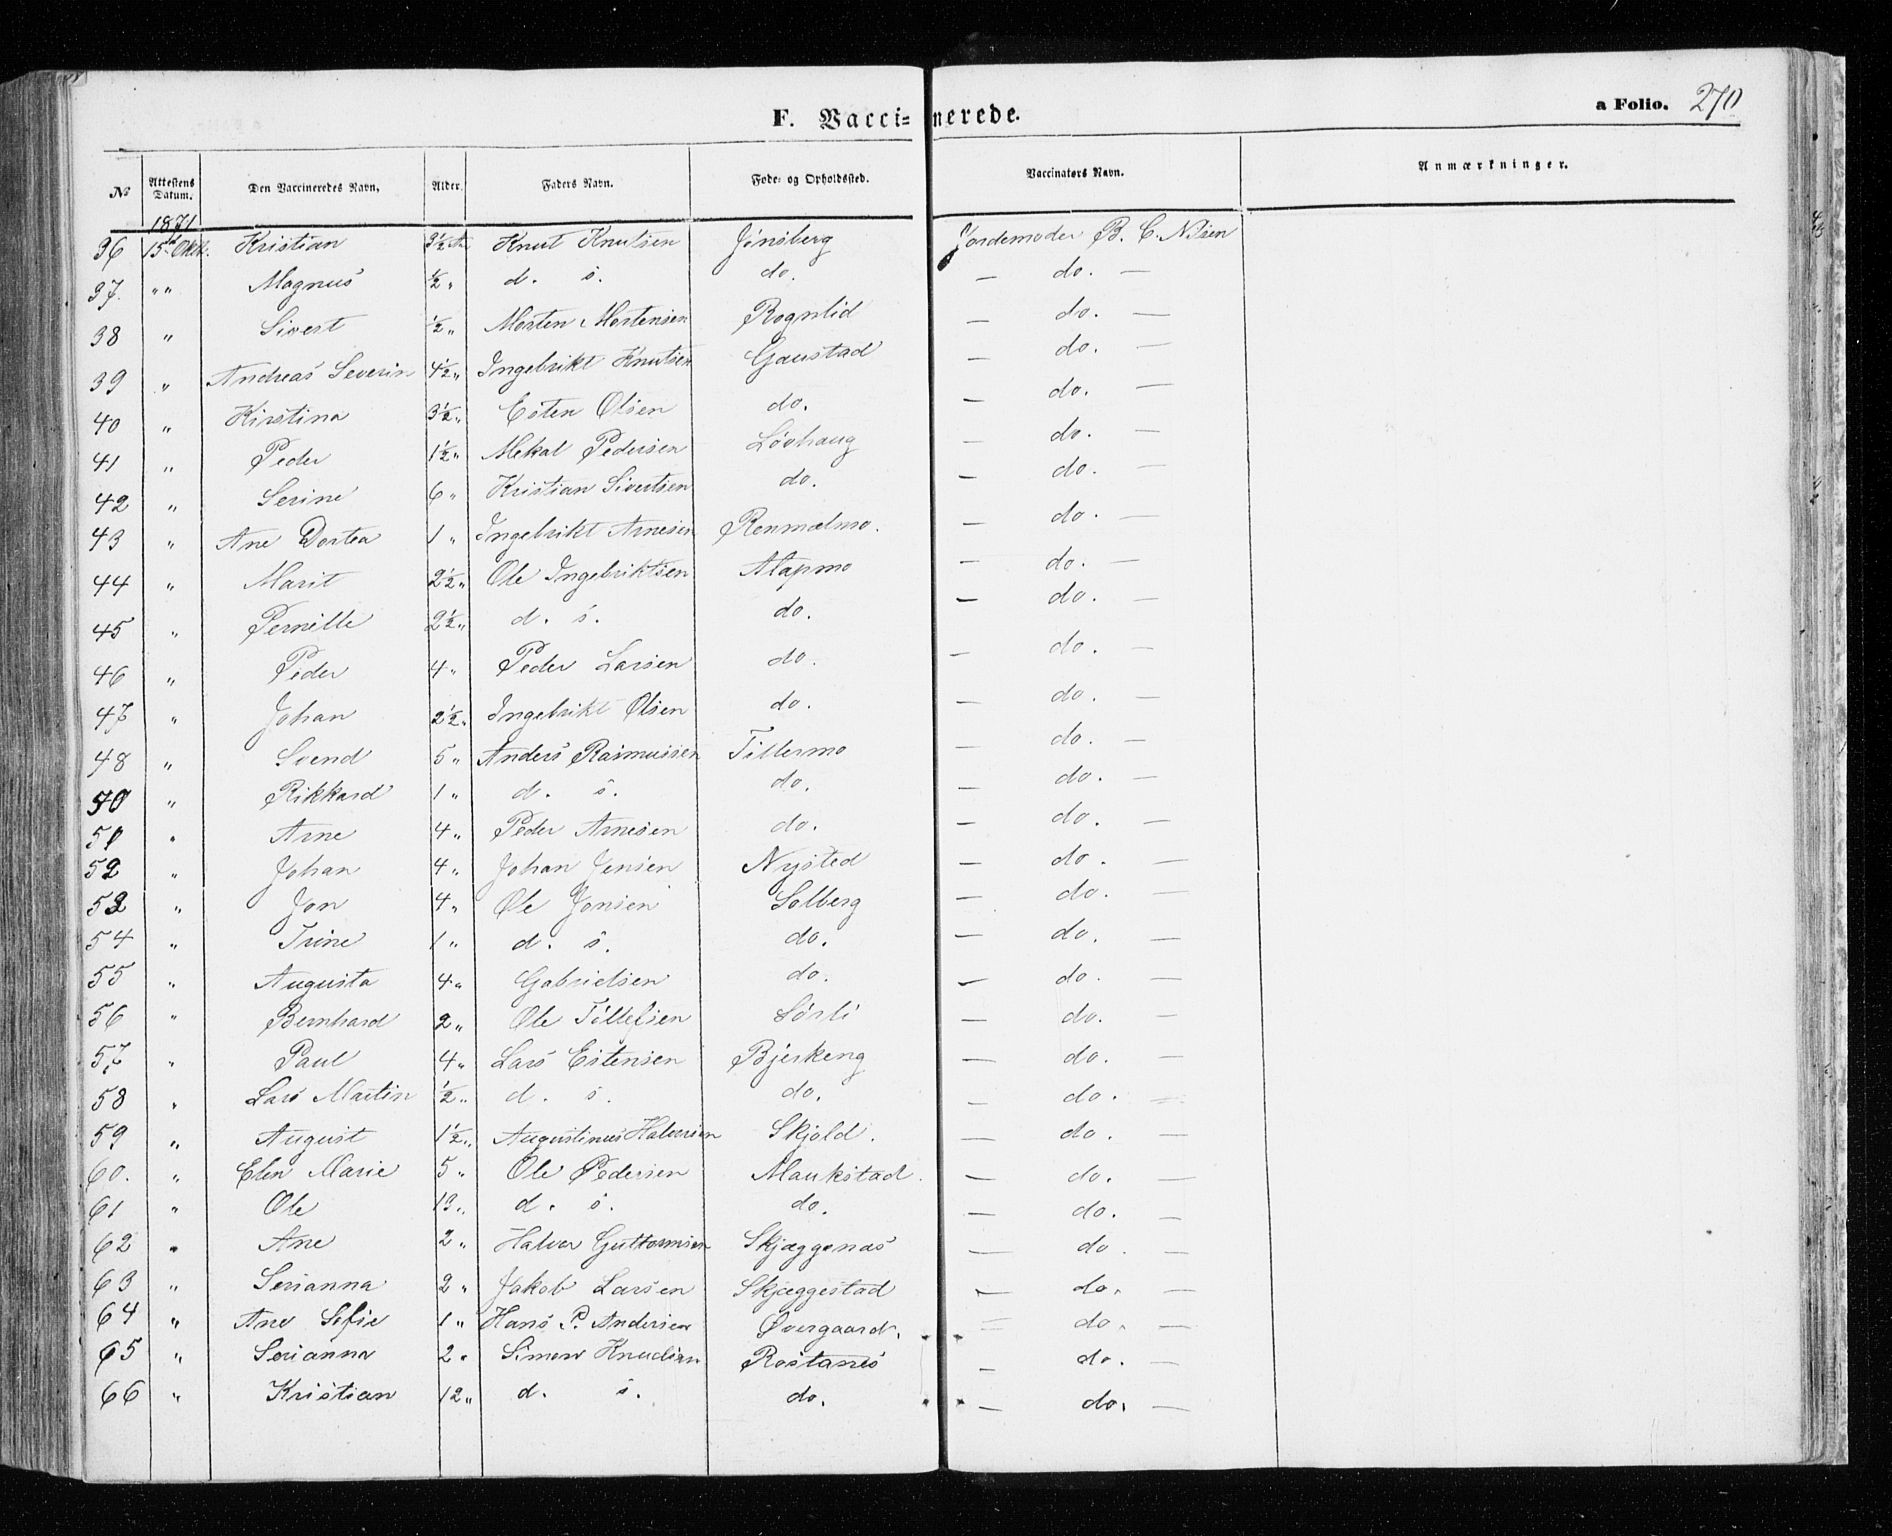 F. Vaccinerede.
a Folio. 270
No Attestens Datum. Den Vaccineredes Navn, Alder. Faders Navn. Føde- og Opholdssted. Vaccinators Navn. Anmærkninger.
1871
36 15de Oktb. Kristian 3½ A. Knut Knutsen Jönsberg Jordemoder B. C. Nilsen
37. " " Magnus ½ " d. s. do. — do. —
38 " Sivert ½ " Morten Mortensen Rognlid — do. —
39 " Andreas Severin 4½ " Ingebrikt Knutsen Gaustad — do. —
40 " Kirstina 3½ " Esten Olsen do. — do. —
41 " Peder 1½ " Mekal Pedersen Lövhaug — do. —
42 " Serine 6 " Kristian Sivertsen do. — do. —
43 " Ane Dortea 1 " Ingebrikt Arnesen Renmælmo. — do. —
44 " Marit 2½ " Ole Ingebriktsen Alapmo — do. —
45 " Pernille 2½ " d. s. do. — do. —
46 " Peder 4 " Peder Larsen do. — do. —
47 " Johan 2½ " Ingebrikt Olsen do. — do. —
48 " Svend 5 " Anders Rasmussen Tillermo — do. —
50 " Rikkard 1 " d. s. do. — do. —
51 " Arne 4 " Peder Arnesen do. — do. —
52 " Johan 4 " Johan Jensen Nysted — do. —
53 " Jon 4 " Ole Jonsen Solberg — do. —
54 " Trine 1 " d. s. do. — do. —
55 " Augusta 4 " Gabrielsen do. — do. —
56 " Bernhard 2 " Ole Tollefsen Sörli — do. —
57 " Paul 4 " Lars Estensen Bjerkeng — do. —
58 " Lars Martin ½ " d. s. do. — do. —
59 " August 1½ " Augustinus Halvorsen Skjold. — do. —
60. " Elen Marie 5 " Ole Pedersen Maukstad. — do. —
61 " Ole 13 " d. s. do. — do. —
62 " Ane 2 " Halvor Guttormsen Skjæggenæs — do. —
63 " Serianna 2 " Jakob Larsen Skjæggestad — do. —
64 " Ane Sofie 1 " Hans P. Andersen Övergaard. — do. —
65 " Serianna 2 " Simon Knudsen Rostanes — do. —
66 " Kristian 12 " d. s. do. — do. —